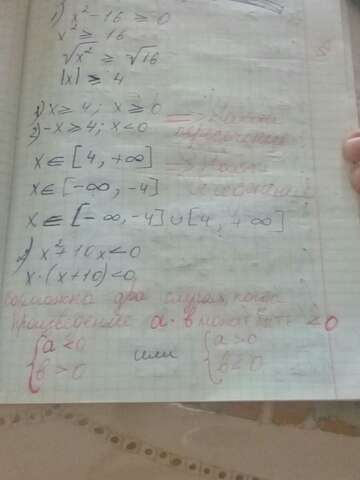 1) x² - 16 ≥ 0
x² ≥ 16
√x² ≥ √16
|x| ≥ 4
1) x ≥ 4; x ≥ 0
2) -x ≥ 4; x < 0
x ∈ [4, +∞]
x ∈ [-∞, -4]
x ∈ [-∞, -4] ∪ [4, +∞]
2) x² + 10x < 0
x · (x + 10) < 0
возможна два случая, когда
произведение a · b может быть < 0
{ a < 0 или { a > 0
{ b > 0 { b < 0